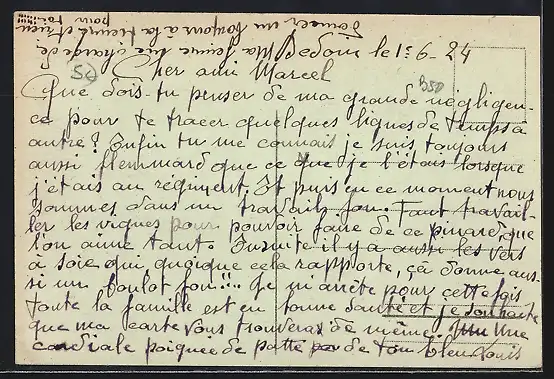 Bedoin le 1er 6-24
Cher ami Marcel
Que dois-tu penser de ma grande négligen-
ce pour te tracer quelques lignes de temps à
autre? Enfin tu me connais je suis toujours
aussi flemmard que ce que je l'étais lorsque
j'étais au régiment. Et puis en ce moment nous
sommes dans un travail fou. Faut travail-
ler les vignes pour pouvoir faire de ce pinard, que
l'on aime tant. Ensuite il y a aussi les vers
à soie qui quoique cela rapporte, çà donne aus-
si un boulot fou!!! Je m'arrête pour cette fois
toute la famille est en bonne santé et je souhaite
que ma carte vous trouveras de même. Une
cordiale poignée de patte de ton Louis
Ma femme me charge de
donner un bonjours à la tienne et rien
pour toi!!!
50
B50